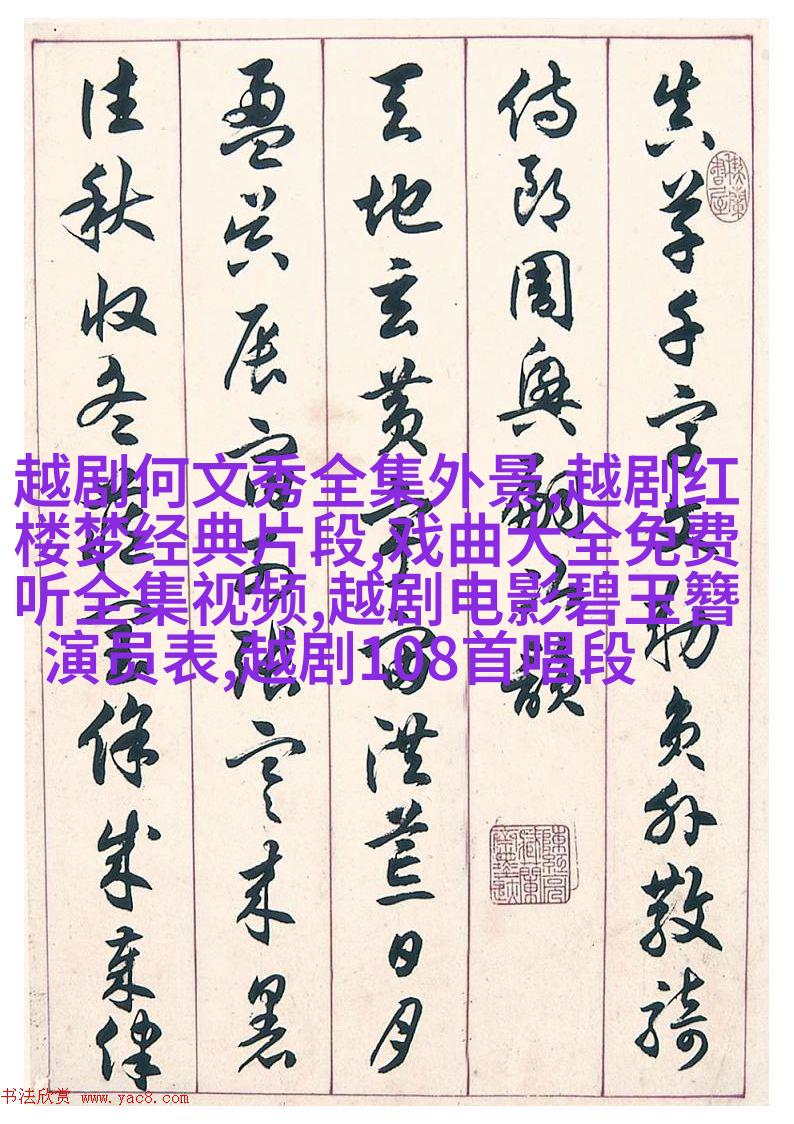 真草千字文勅員外散騎
侍郎周興嗣次韻
天地玄黄宇宙洪荒日月
盈昃辰宿列張寒来暑
往秋收冬藏閏餘成歲律
越剧何文秀全集外景,越剧红
楼梦经典片段,戏曲大全免费
听全集视频,越剧电影碧玉簪
演员表,越剧108首唱段
书法欣赏 www.yac8.com